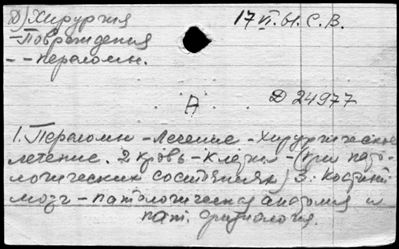 Д) Хирургия 17 VI. Н. С. В.
- Повреждения
- - переломы.
А Д 24977
1. Переломы - Лечение - Хирургическое
лечение. 2 Кровь - Клетки - (при пато-
логических состояниях) 3. Костный
мозг - патологическая анатомия и
пат. физиология.